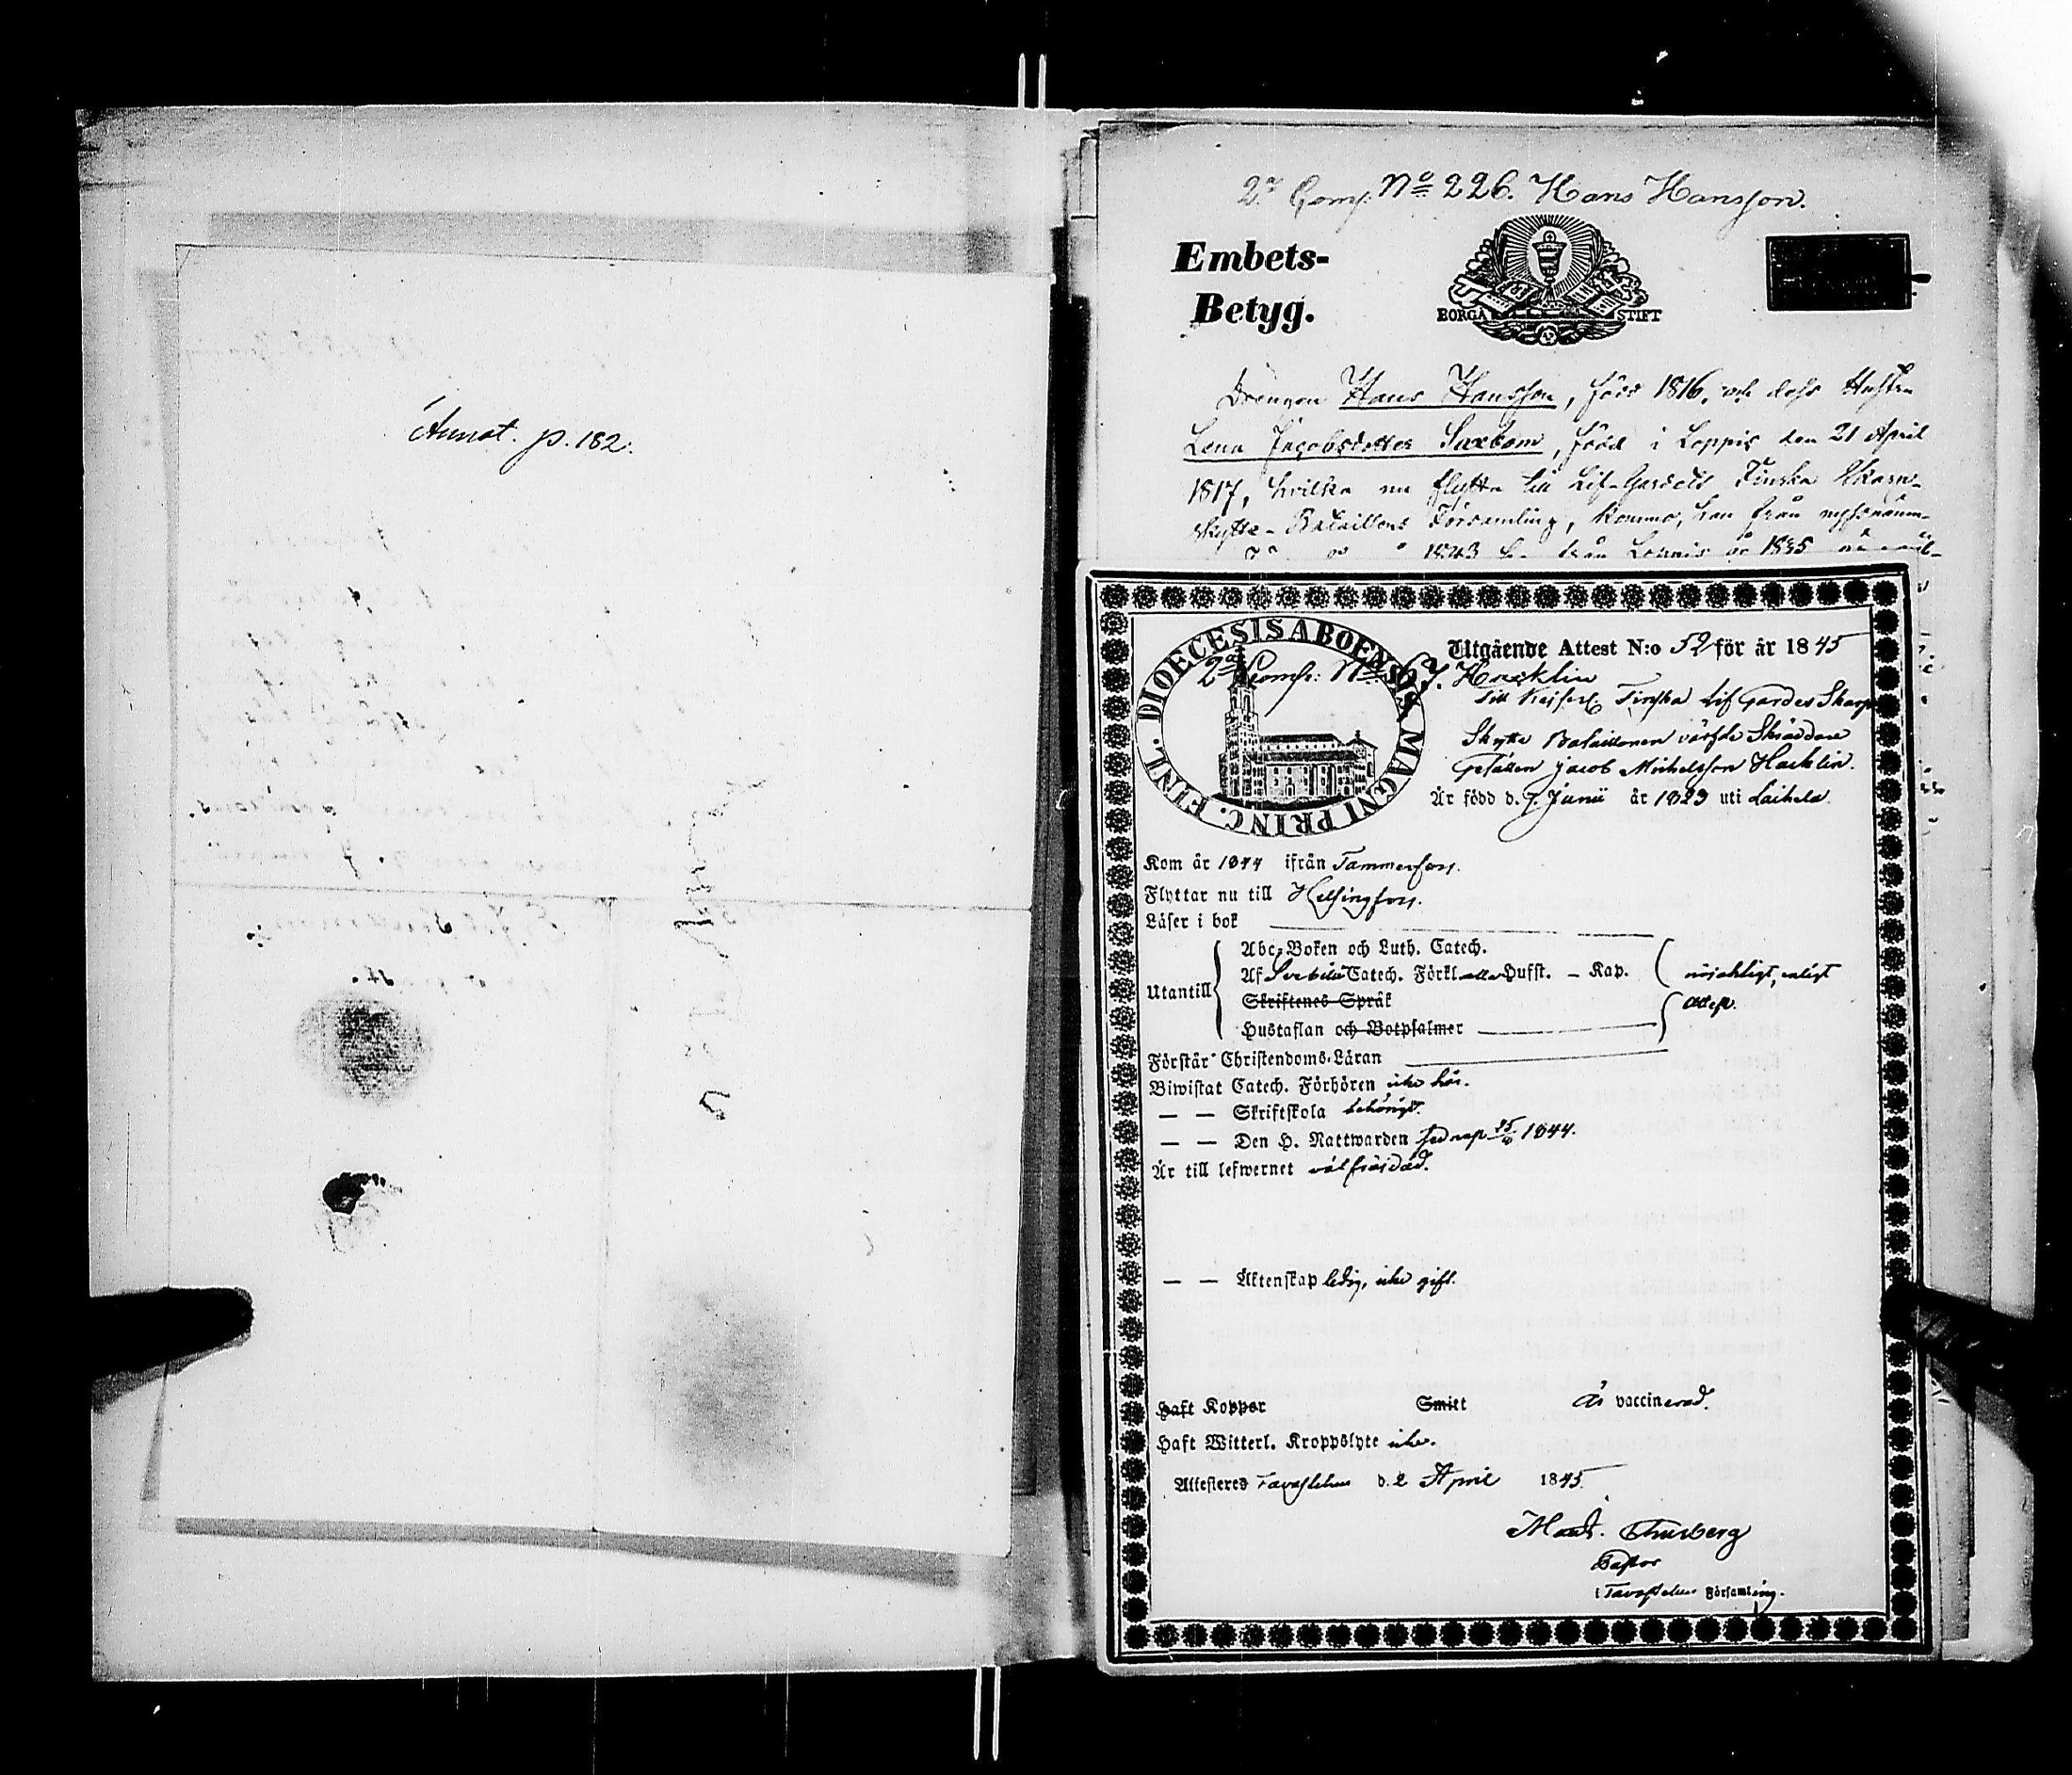 Annot. p. 182.
2a Comp. No 226. Hans Hansson.
Embets-
Betyg.
BORGÅ STIFT
Drängen Hans Hansson, född 1816, och dess Hustru
Lena Jacobsdotter Saxbom, född i Loppis den 21 April
1817, hvilka nu flytta till Lif-Gardets Finska Skarp-
skytte-Bataillons Församling, kommo, han från
1843 från Loppis år 1835
DIOECESIS ABOENSIS MAGNI PRINC. FINL.
Utgående Attest N:o 52 för år 1845
2a Comp: No 67. Hacklin
Till Kejserl. Finska Lif Gardes Skarp
Skytte Bataillonen värfde Skräddare
Gesällen Jacob Michelsson Hacklin.
Är född d. 7 Junii år 1823 uti Laihela
Kom år 1844 ifrån Tammerfors.
Flyttar nu till Helsingfors.
Läser i bok
Utantill
Abc-Boken och Luth. Catech.
Af Svebilii Catech. Förkl. alla Hufst. – Kap.
nöjaktigt, enligt
attest.
Skriftenes Språk
Hustaflan och Botpsalmer
Förstår Christendoms-Läran
Biwistat Catech. Förhören icke här.
— — Skriftskola behörigt.
— — Den H. Nattwarden 1844.
Är till lefwernet välfrejdad.
— — Äktenskap ledig, icke gift.
Haft Koppor Smitt är vaccinerad.
Haft Witterl. Kroppslyte icke.
Attesteres Tavastehus d. 2 April 1845.
Pastor
i Tavastehus Församling.